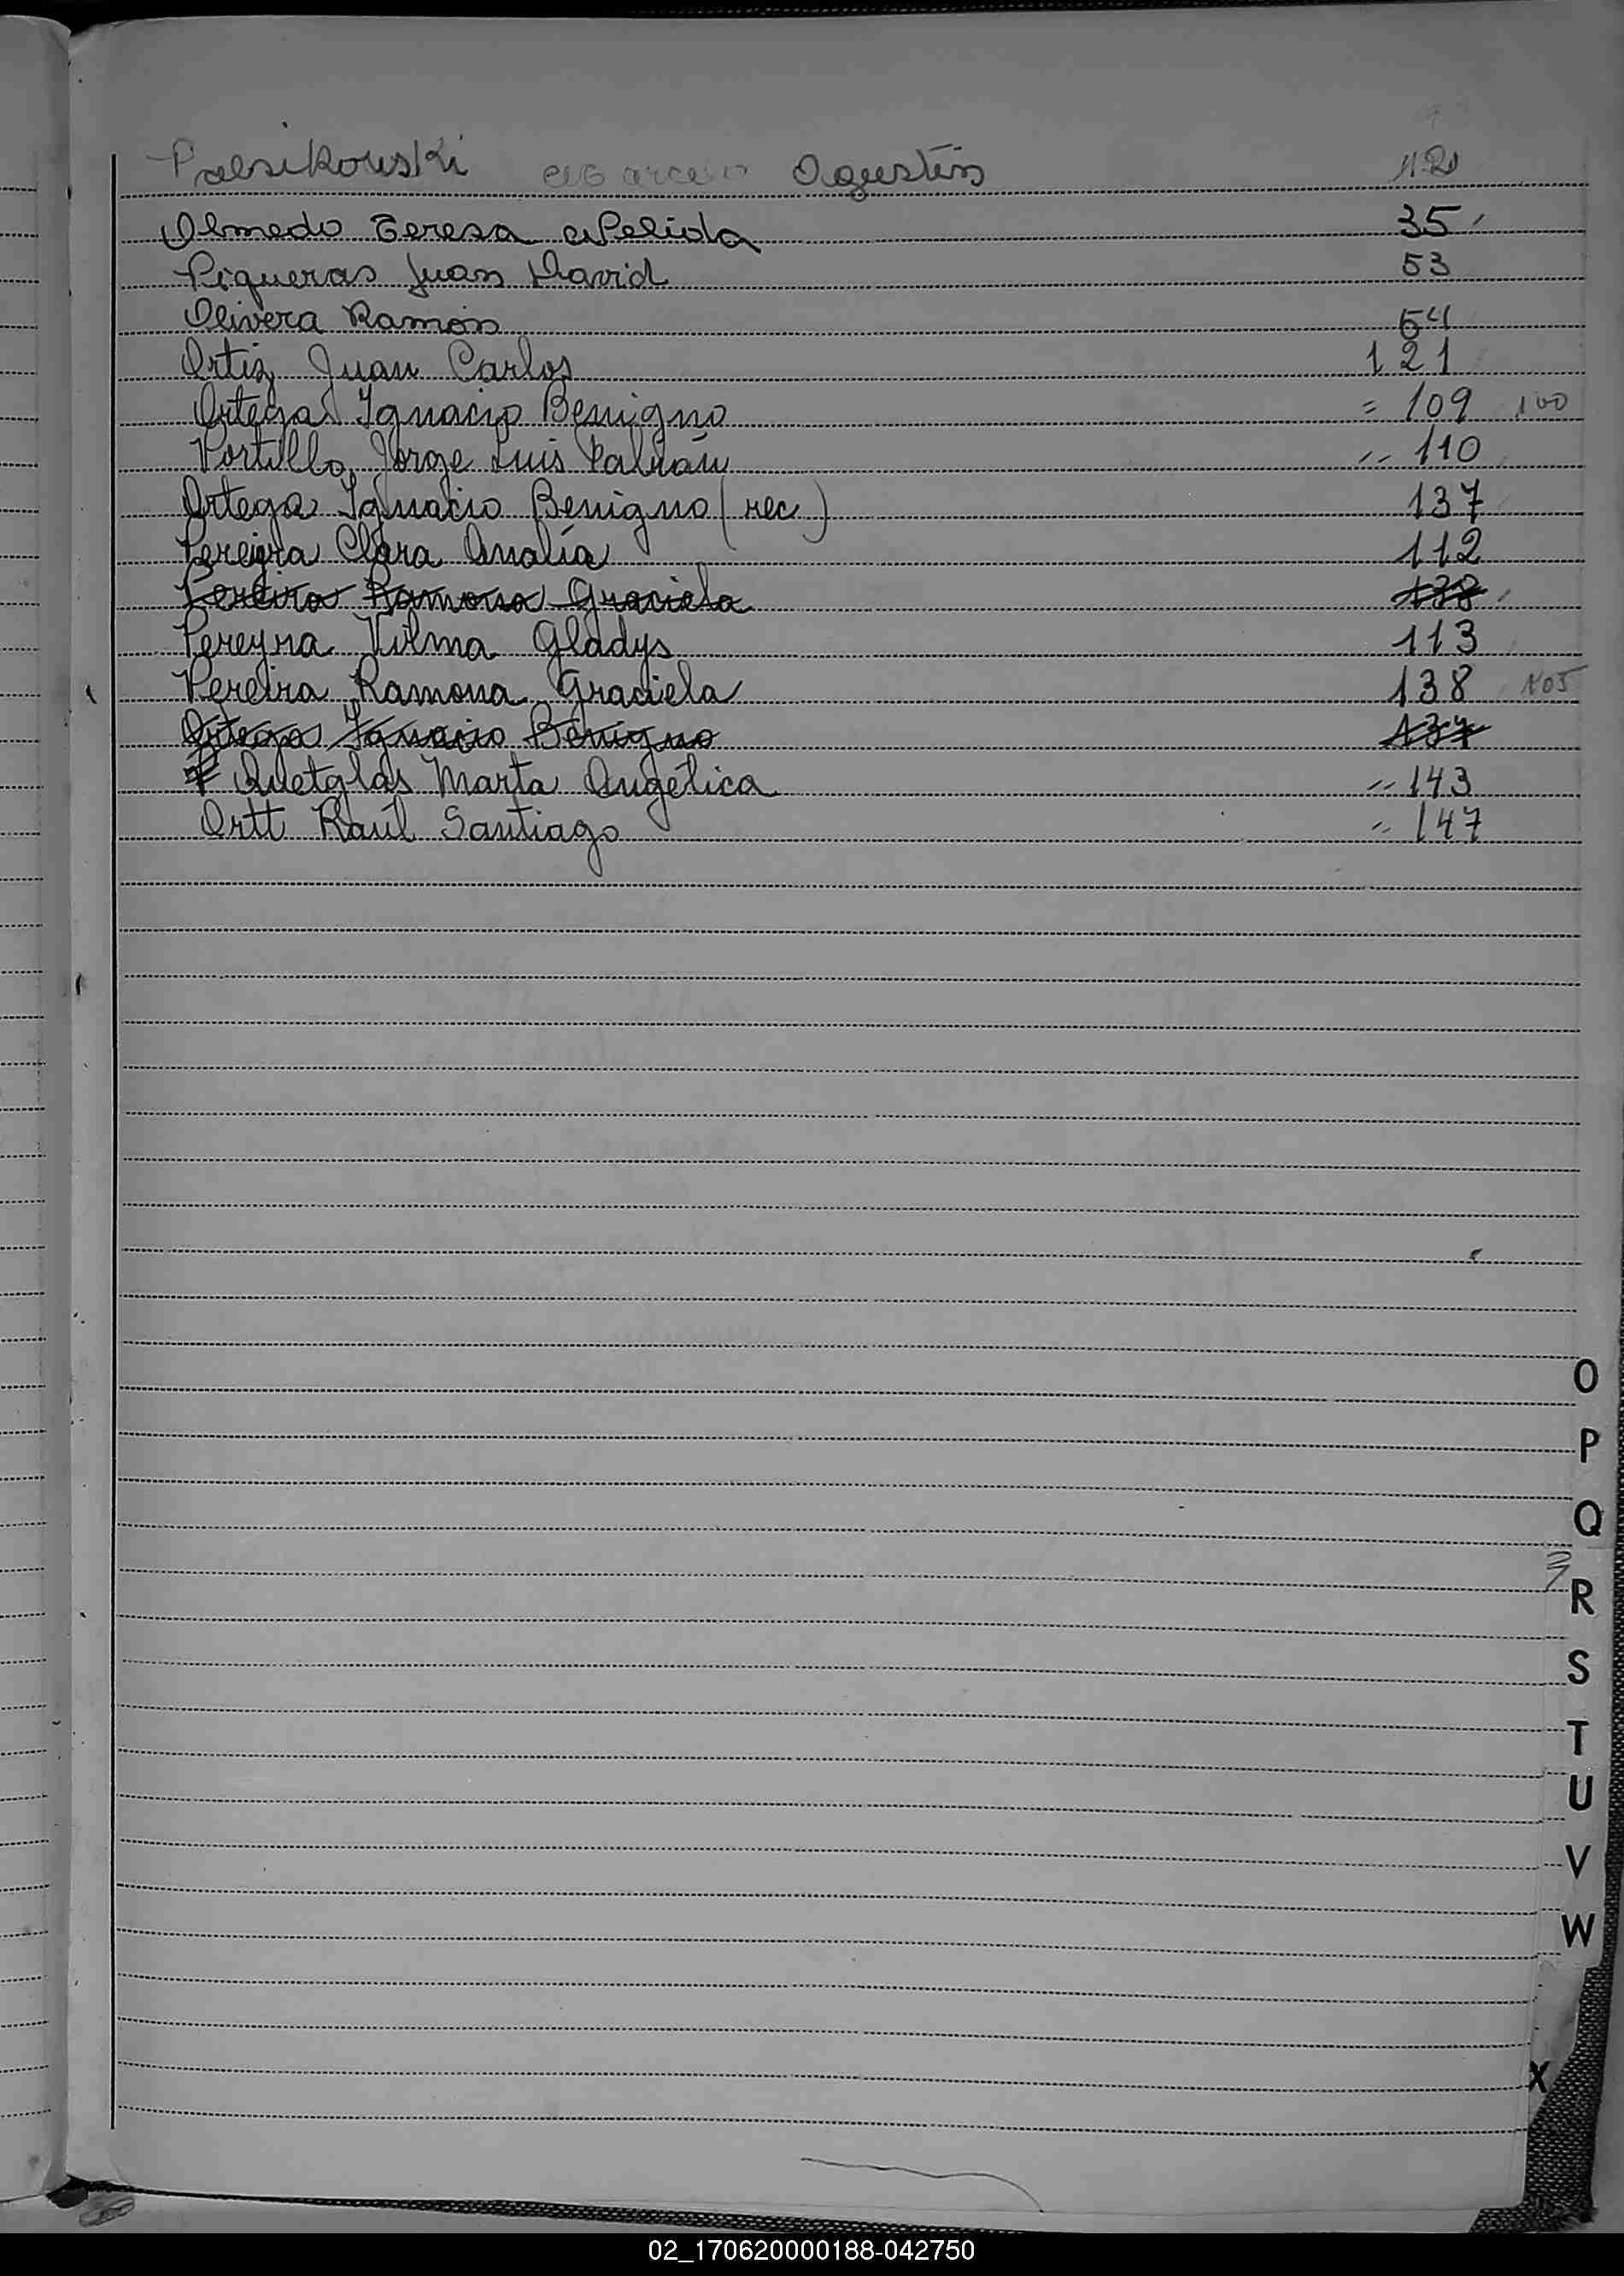 Palsikouski Marcelo Agustín
Olmedo Teresa Nelida 35
Piqueras Juan David 53
Olivera Ramón 54
Ortiz Juan Carlos 121
Ortega Ignacio Benigno = 109 100
Portillo, Jorge Luis 110
Ortega Ignacio Benigno (rec) 137
Pereira Clara Analía 112
Pereira Ramona Graciela 138
Pereyra Vilma Gladys 113
Pereira Ramona Graciela 138 105
Ortega Ignacio Benigno 137
Quetglas Marta Angélica 143
Ortt Raúl Santiago 147
O
P
Q
R
S
T
U
V
W
X
02_170620000188-042750